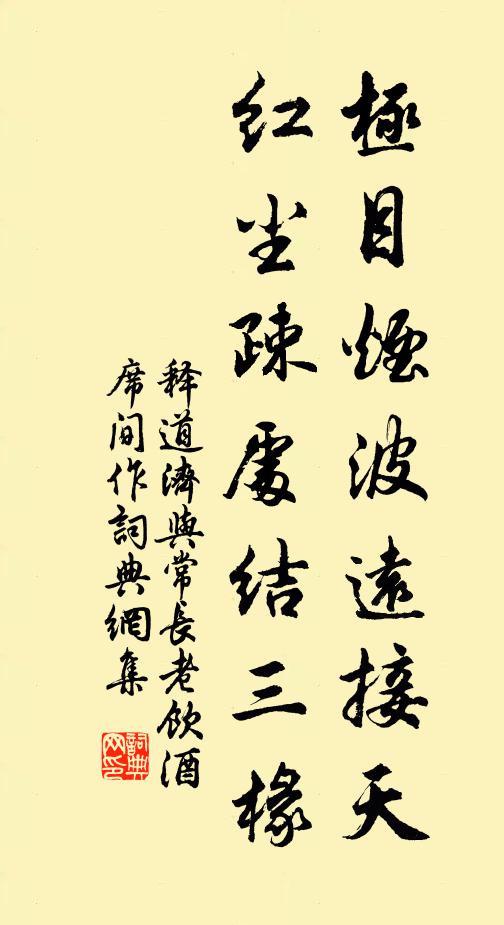 極目煙波遠接天
紅塵疎處結三椽
释道濟與常長老飲酒
席间作詞典網集
詞典
网印